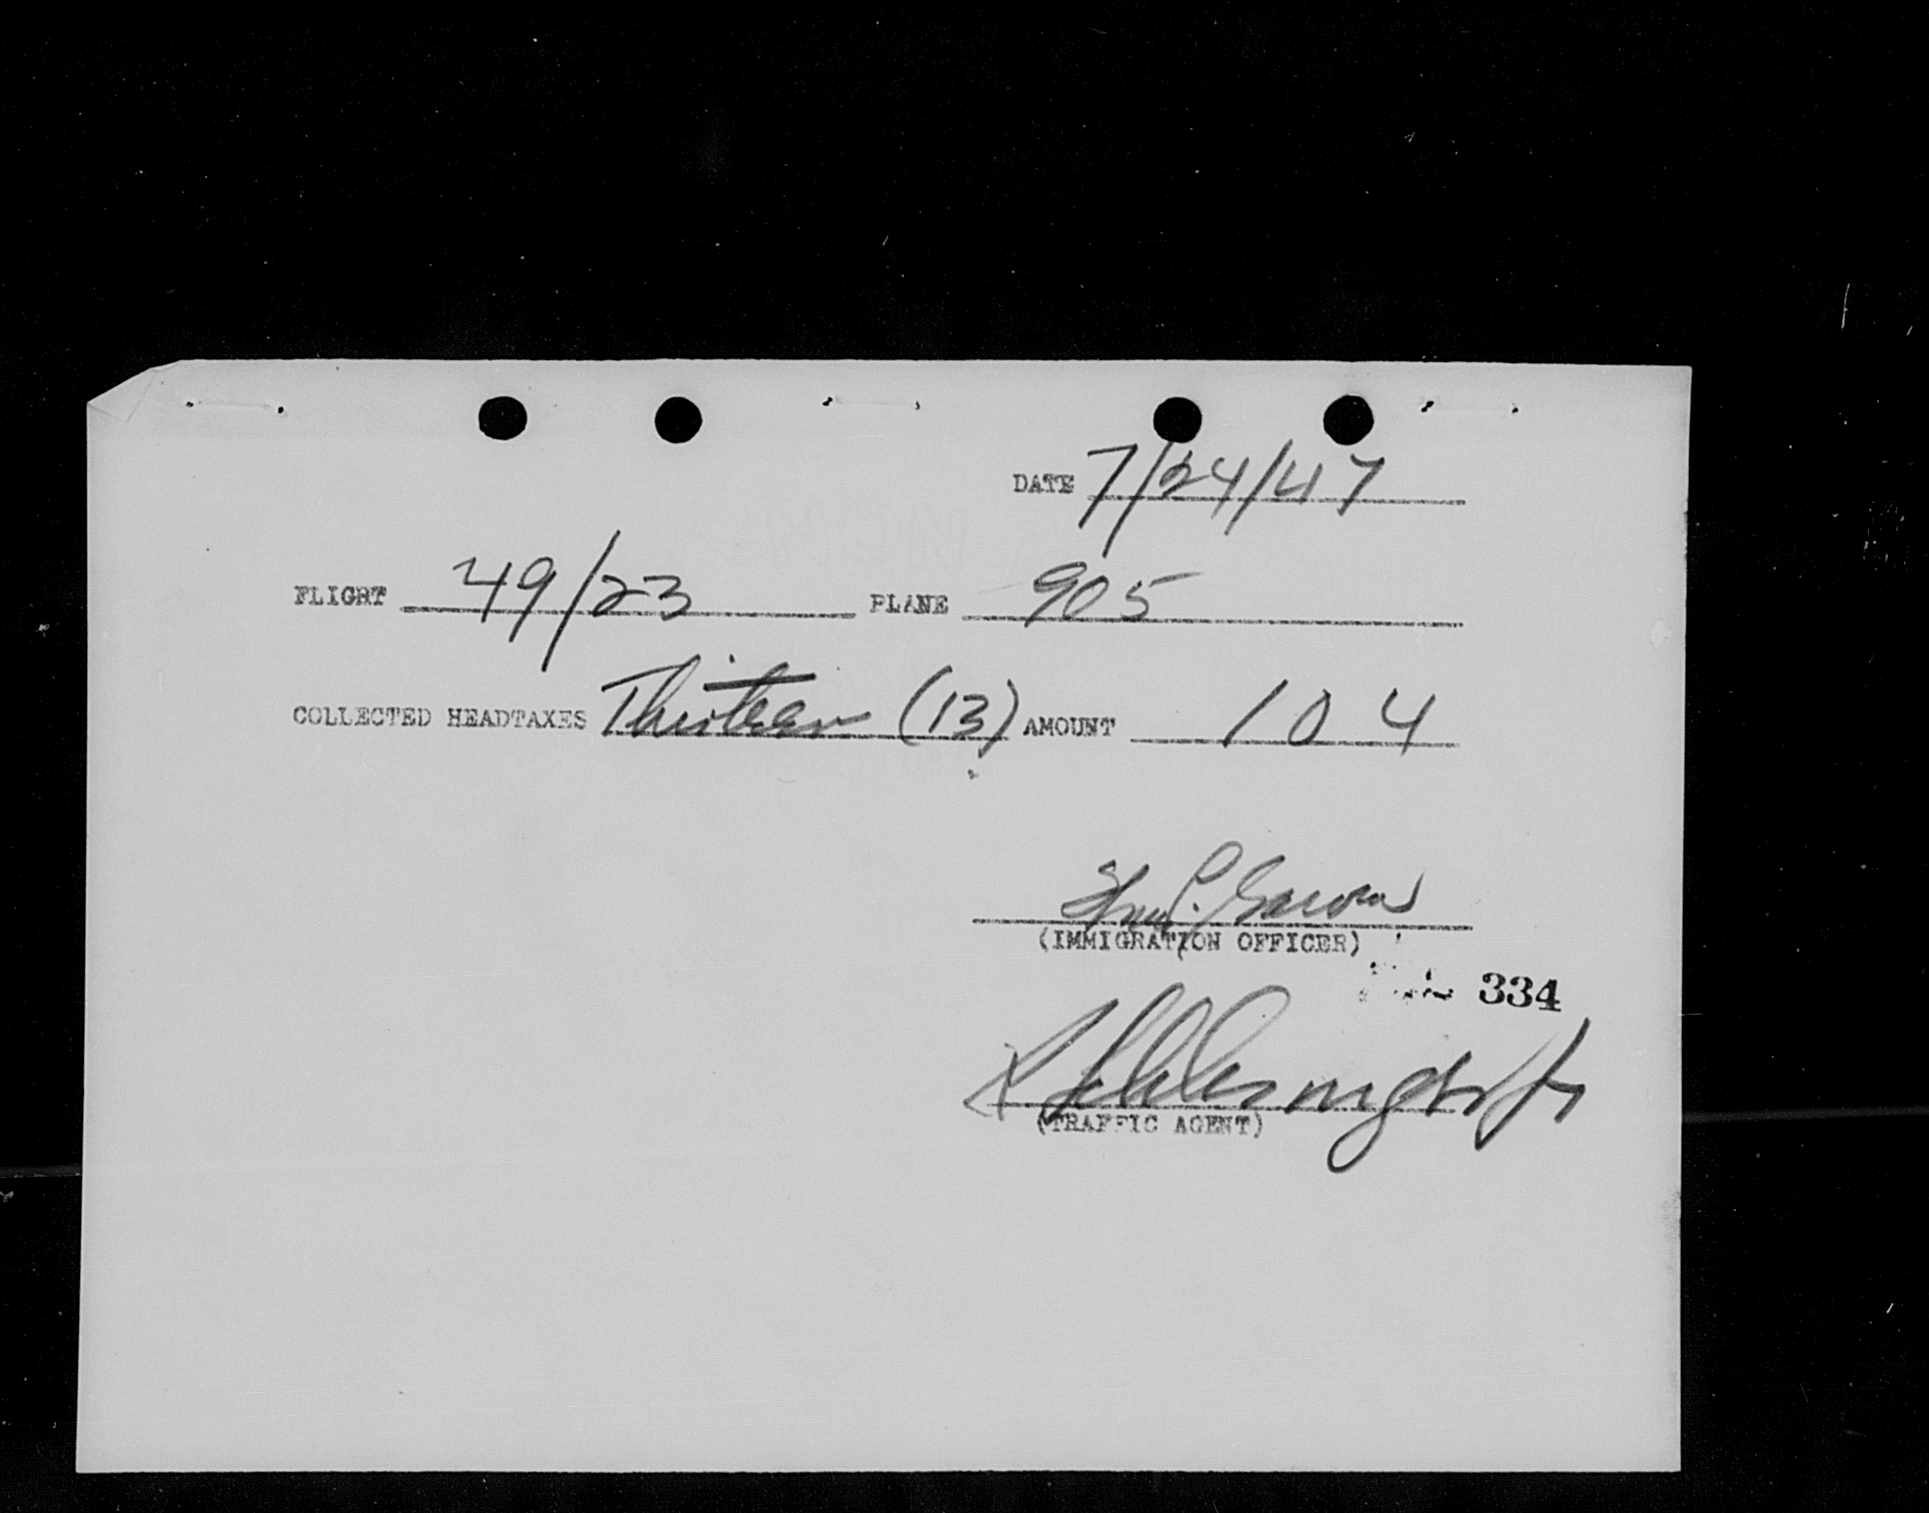 DATE 7/24/47
FLIGHT 49/23 PLANE 905
COLLECTED HEADTAXES Thirteen (13) AMOUNT 104
(IMMIGRATION OFFICER)
334
(TRAFFIC AGENT)